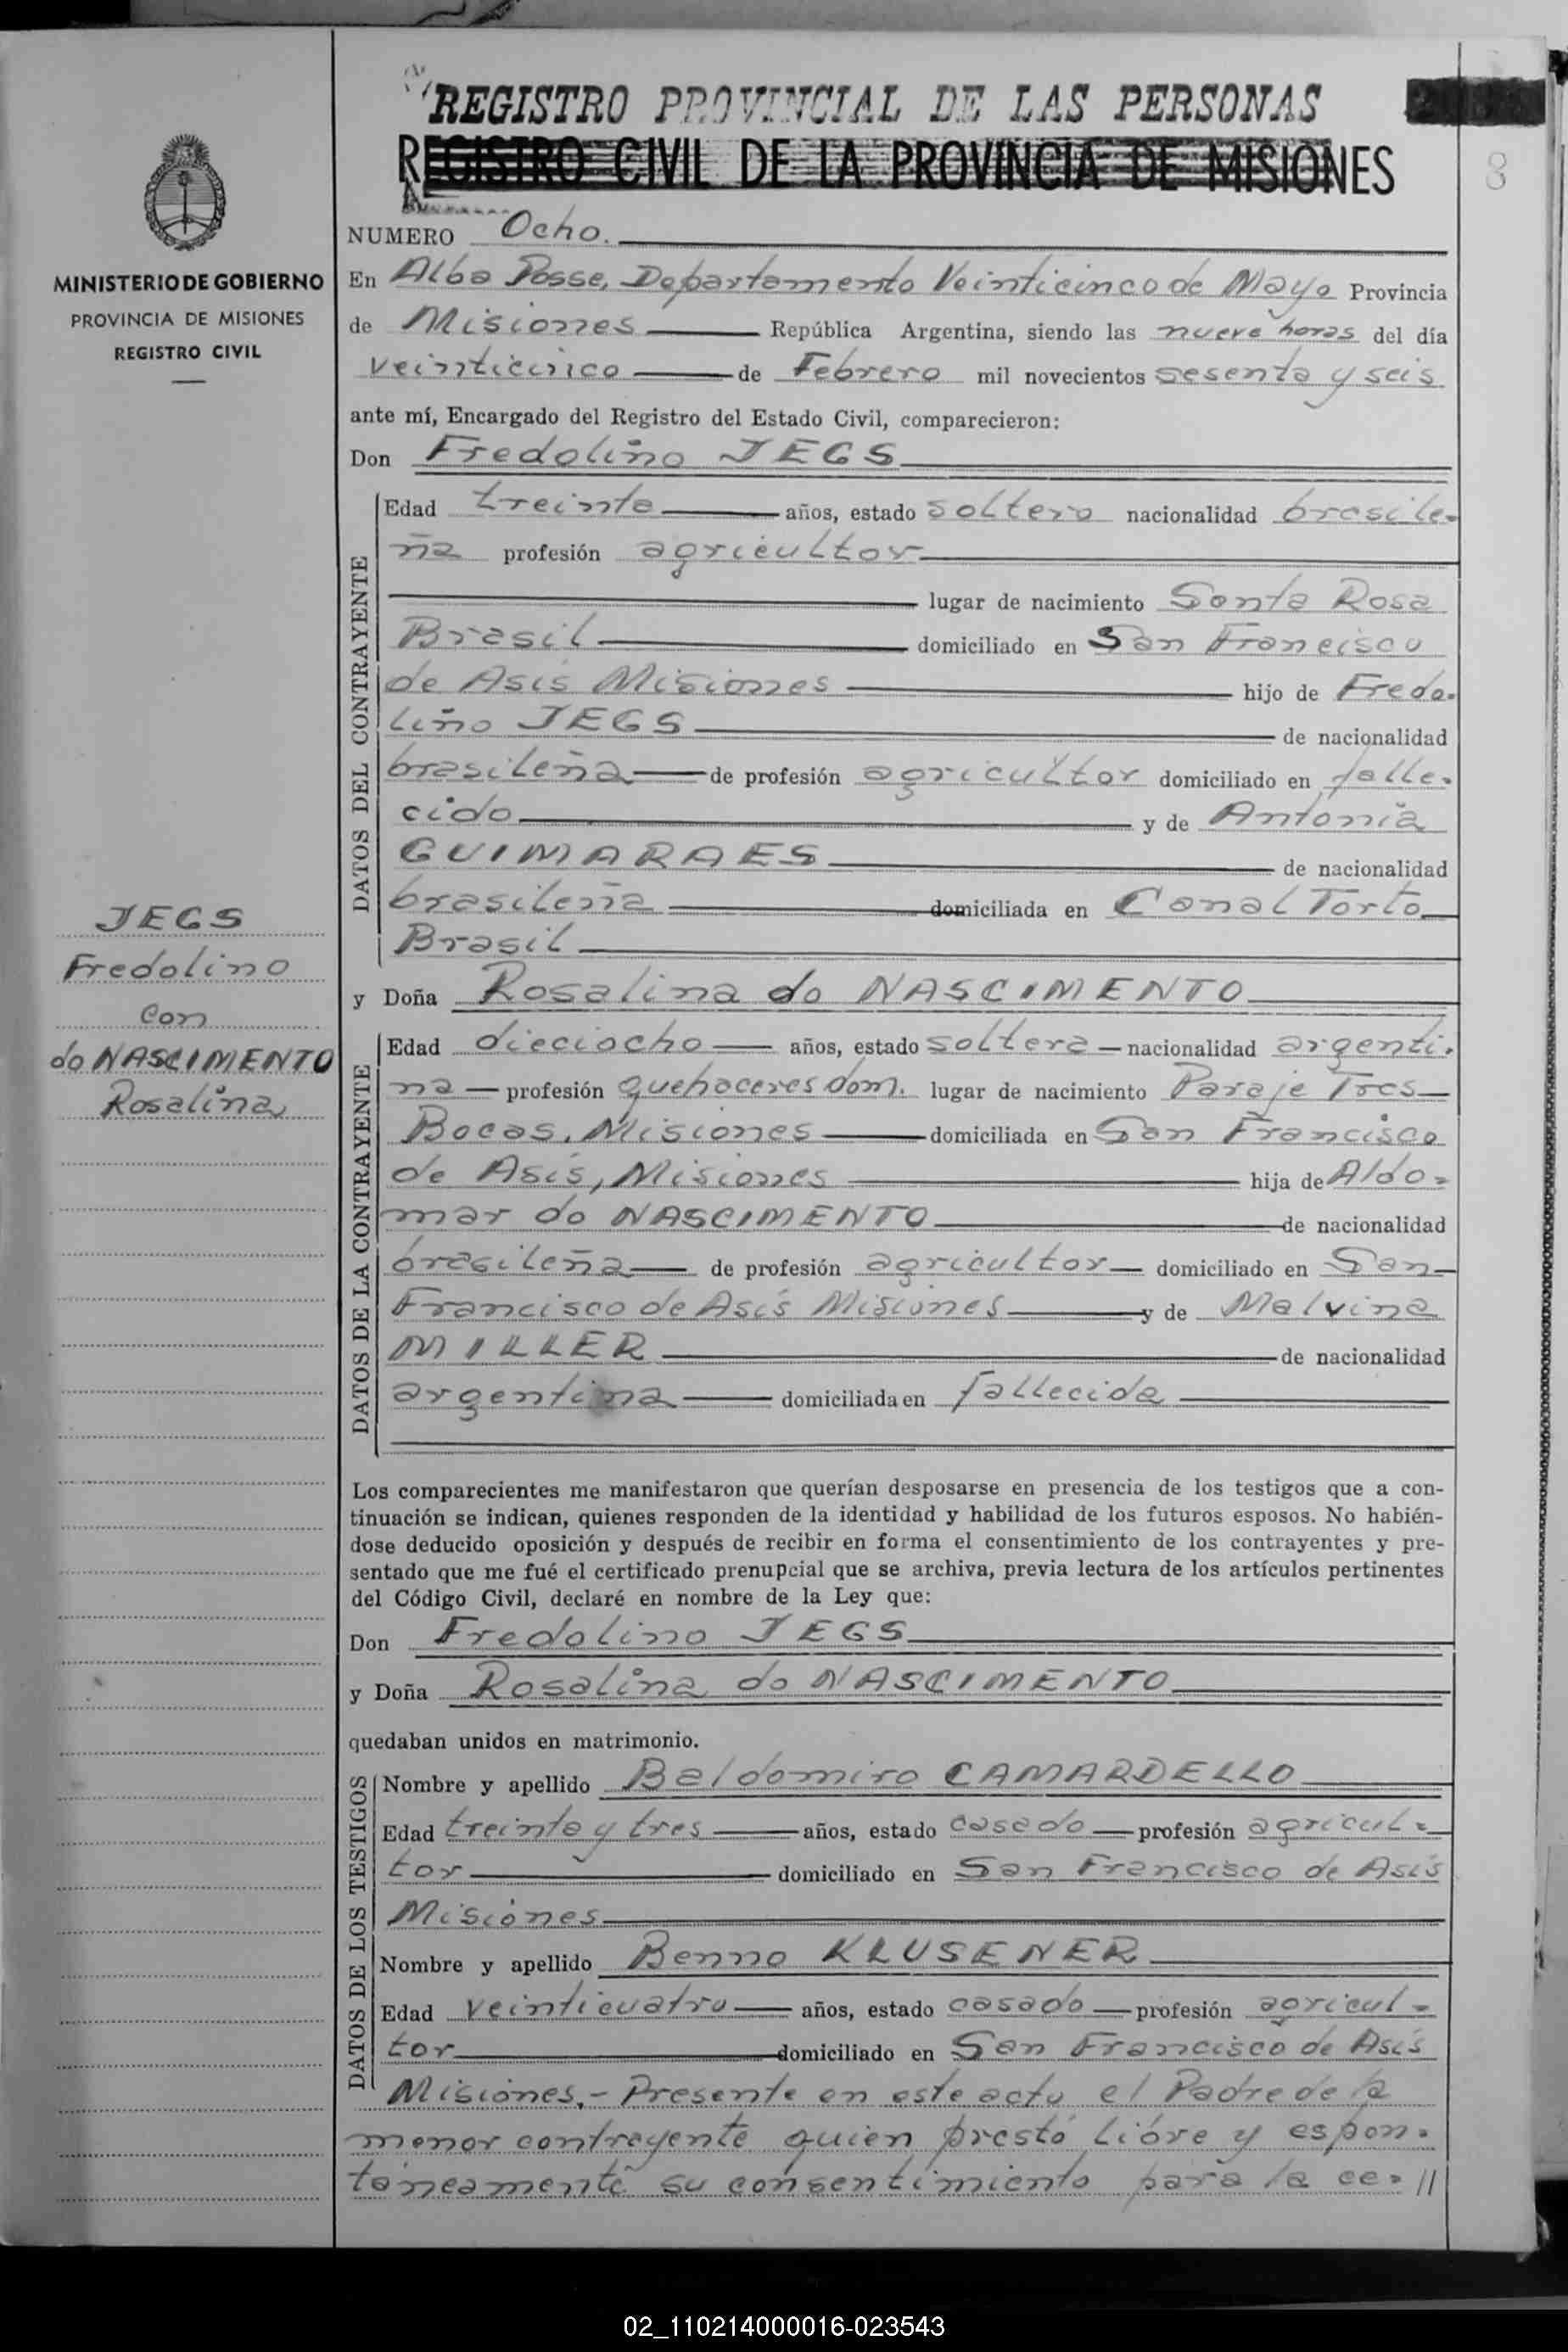 REGISTRO PROVINCIAL DE LAS PERSONAS
REGISTRO CIVIL DE LA PROVINCIA DE MISIONES
8
MINISTERIO DE GOBIERNO
PROVINCIA DE MISIONES
REGISTRO CIVIL
NUMERO Ocho.
En Alba Posse, Departamento Veinticinco de Mayo Provincia
de Misiones República Argentina, siendo las nueve horas del día
veinticinco de Febrero mil novecientos sesenta y seis
ante mí, Encargado del Registro del Estado Civil, comparecieron:
Don Fredolino JEGS
DATOS DEL CONTRAYENTE
Edad treinta años, estado soltero nacionalidad brasile-
ña profesión agricultor
lugar de nacimiento Santa Rosa
Brasil domiciliado en San Francisco
de Asís Misiones hijo de Fredo-
lino JEGS de nacionalidad
brasileña de profesión agricultor domiciliado en falle-
cido y de Antonia
GUIMARAES de nacionalidad
brasileña domiciliada en Canal Torto
Brasil
JEGS
Fredolino
con
do NASCIMENTO
Rosalina
y Doña Rosalina do NASCIMENTO
DATOS DE LA CONTRAYENTE
Edad dieciocho años, estado soltera nacionalidad argenti-
na profesión quehaceres dom. lugar de nacimiento Paraje Tres
Bocas, Misiones domiciliada en San Francisco
de Asís, Misiones hija de Aldo-
mar do NASCIMENTO de nacionalidad
brasileña de profesión agricultor domiciliado en San
Francisco de Asís Misiones y de Malvina
MILLER de nacionalidad
argentina domiciliada en fallecida
Los comparecientes me manifestaron que querían desposarse en presencia de los testigos que a con-
tinuación se indican, quienes responden de la identidad y habilidad de los futuros esposos. No habién-
dose deducido oposición y después de recibir en forma el consentimiento de los contrayentes y pre-
sentado que me fué el certificado prenupcial que se archiva, previa lectura de los artículos pertinentes
del Código Civil, declaré en nombre de la Ley que:
Don Fredolino JEGS
y Doña Rosalina do NASCIMENTO
quedaban unidos en matrimonio.
DATOS DE LOS TESTIGOS
Nombre y apellido Baldomiro CAMARDELLO
Edad treinta y tres años, estado casado profesión agricul-
tor domiciliado en San Francisco de Asís
Misiones
Nombre y apellido Benno KLUSENER
Edad veinticuatro años, estado casado profesión agricul-
tor domiciliado en San Francisco de Asís
Misiones.- Presente en este acto el Padre de la
menor contrayente quien prestó libre y espon-
taneamente su consentimiento para la ce-//
02_110214000016-023543